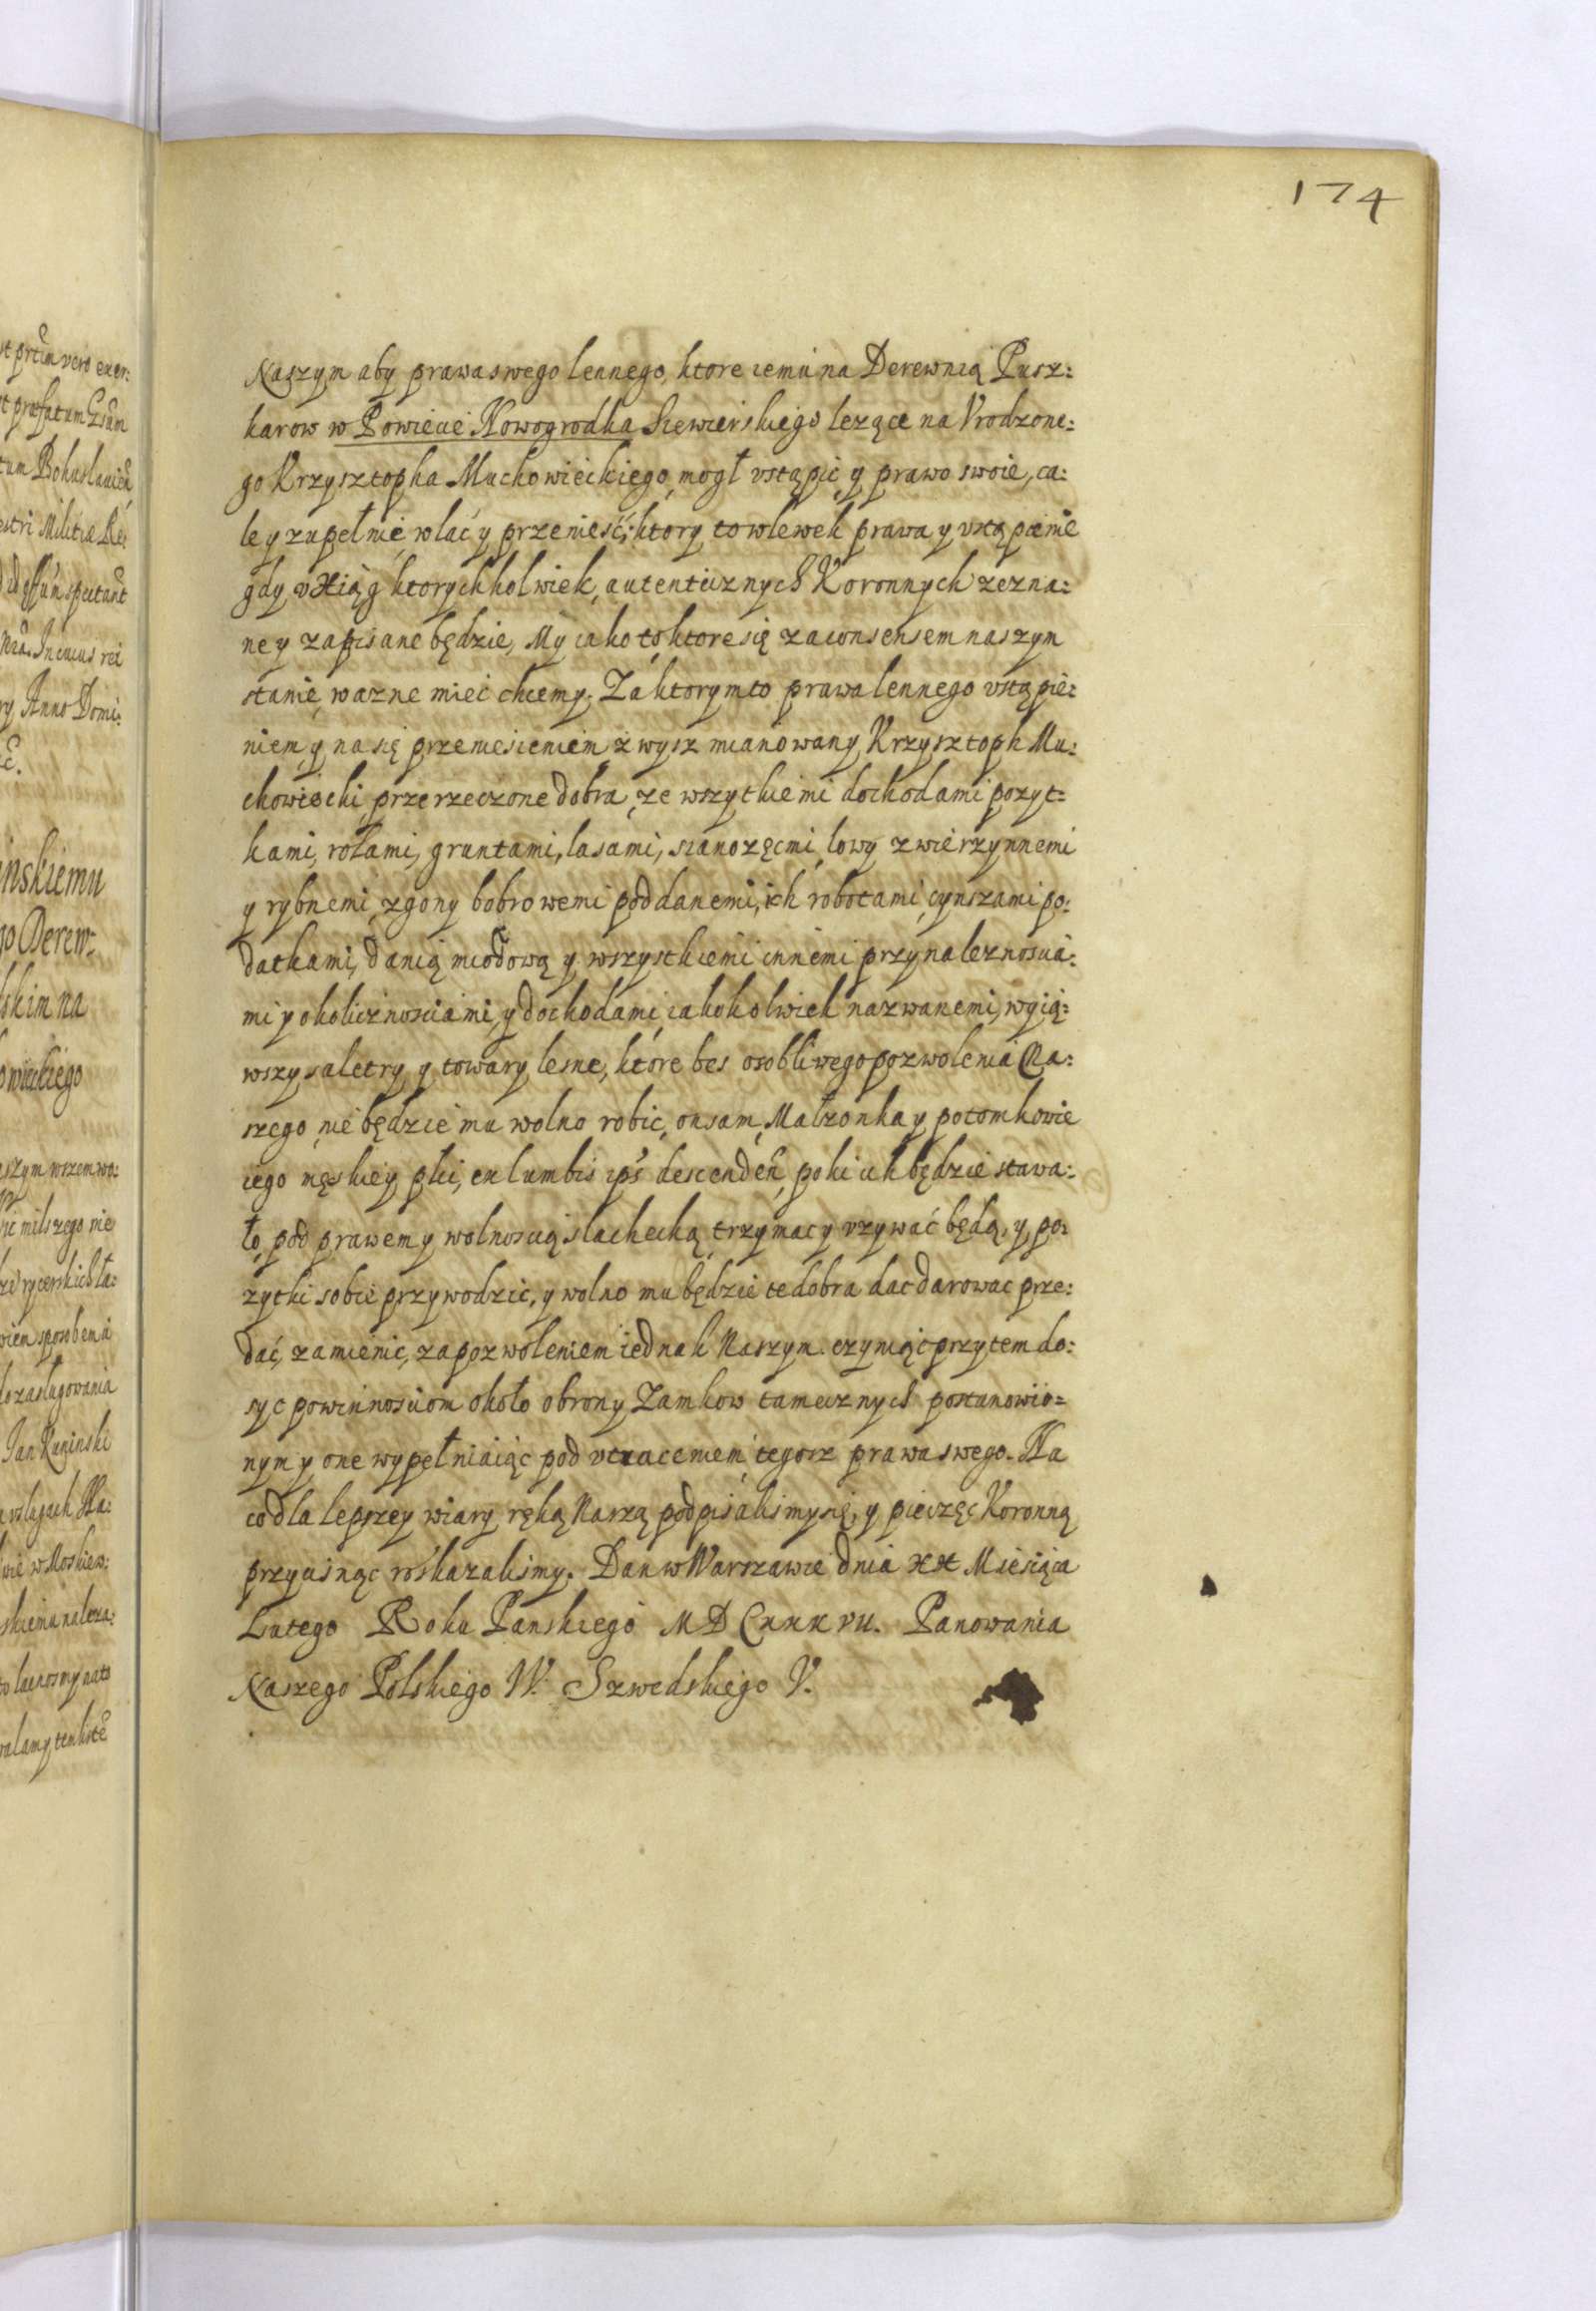 174
Naszym aby prawa swego lennego, ktore iemu na Derewnią Pusz:
karow w Powiecie Nowogrodka Siewierskiego lezące na Vrodzone:
go Krzysztopha Muchowieckiego, mogł vstąpic y prawo swoie, ca:
le y zupełnie wlać y przenieść, ktory to wlewek prawa y vstąpienie
gdy v Xiąg ktorychkolwiek, autenticznych Koronnych zezna:
ne y zapisane będzie, My iako to ktore się za consensem naszym
stanie, wazne mieć chcemy. Za ktorym to prawa lennego vstąpie:
niem, y na się przeniesieniem zwysz mianowany Krzysztoph Mu:
chowiecki, przerzeczone dobra, ze wszytkiemi dochodami pozyt:
kami, rolami, gruntami, lasami, sianozęcmi, lowy zwierzynnemi
y rybnemi, zgony bobrowemi poddanemi, ich robotami, cynszami po:
datkami, danią miodową y wszystkiemi innemi przynaleznoscia:
mi y okolicznosciami, y dochodami, iakokolwiek nazwanemi, wyią:
wszy saletry y towary lesne, ktore bes osobliwego pozwolenia Na:
szego, nie będzie mu wolno robic, on sam, Małzonka y potomkowie
iego męskiey płci, ex lumbis ips descenden, poki ich będzie stawa:
ło, pod prawem y wolnoscią slachecką, trzymac y vzywać będą, y po:
zytki sobie przywodzic, y wolno mu będzie te dobra dac darowac prze:
dać, zamienic, za pozwoleniem iednak Naszym. czyniąc przytem do:
syc powinnosciom około obrony Zamkow tamecznych postanowio:
nym y one wypełniaiąc pod vtraceniem tegosz prawa swego. Na
co dla lepszey wiary ręką Naszą podpisalismy się, y pieczęc Koronną
przycisnąc roskazalismy. Dan w Warszawie dnia XX Miesiąca
Lutego Roku Panskiego MDCXXXVII. Panowania
Naszego Polskiego IV. Szwedskiego V.